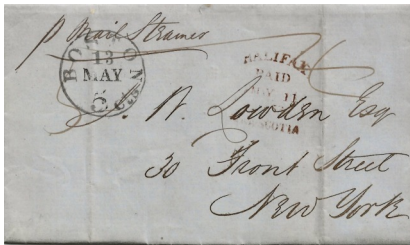 p Mail Steamer
BOSTON
13
MAY
5 cts
HALIFAX
PAID
MY 11
SCOTIA
W. Lowden Esq
30 Front Street
New York